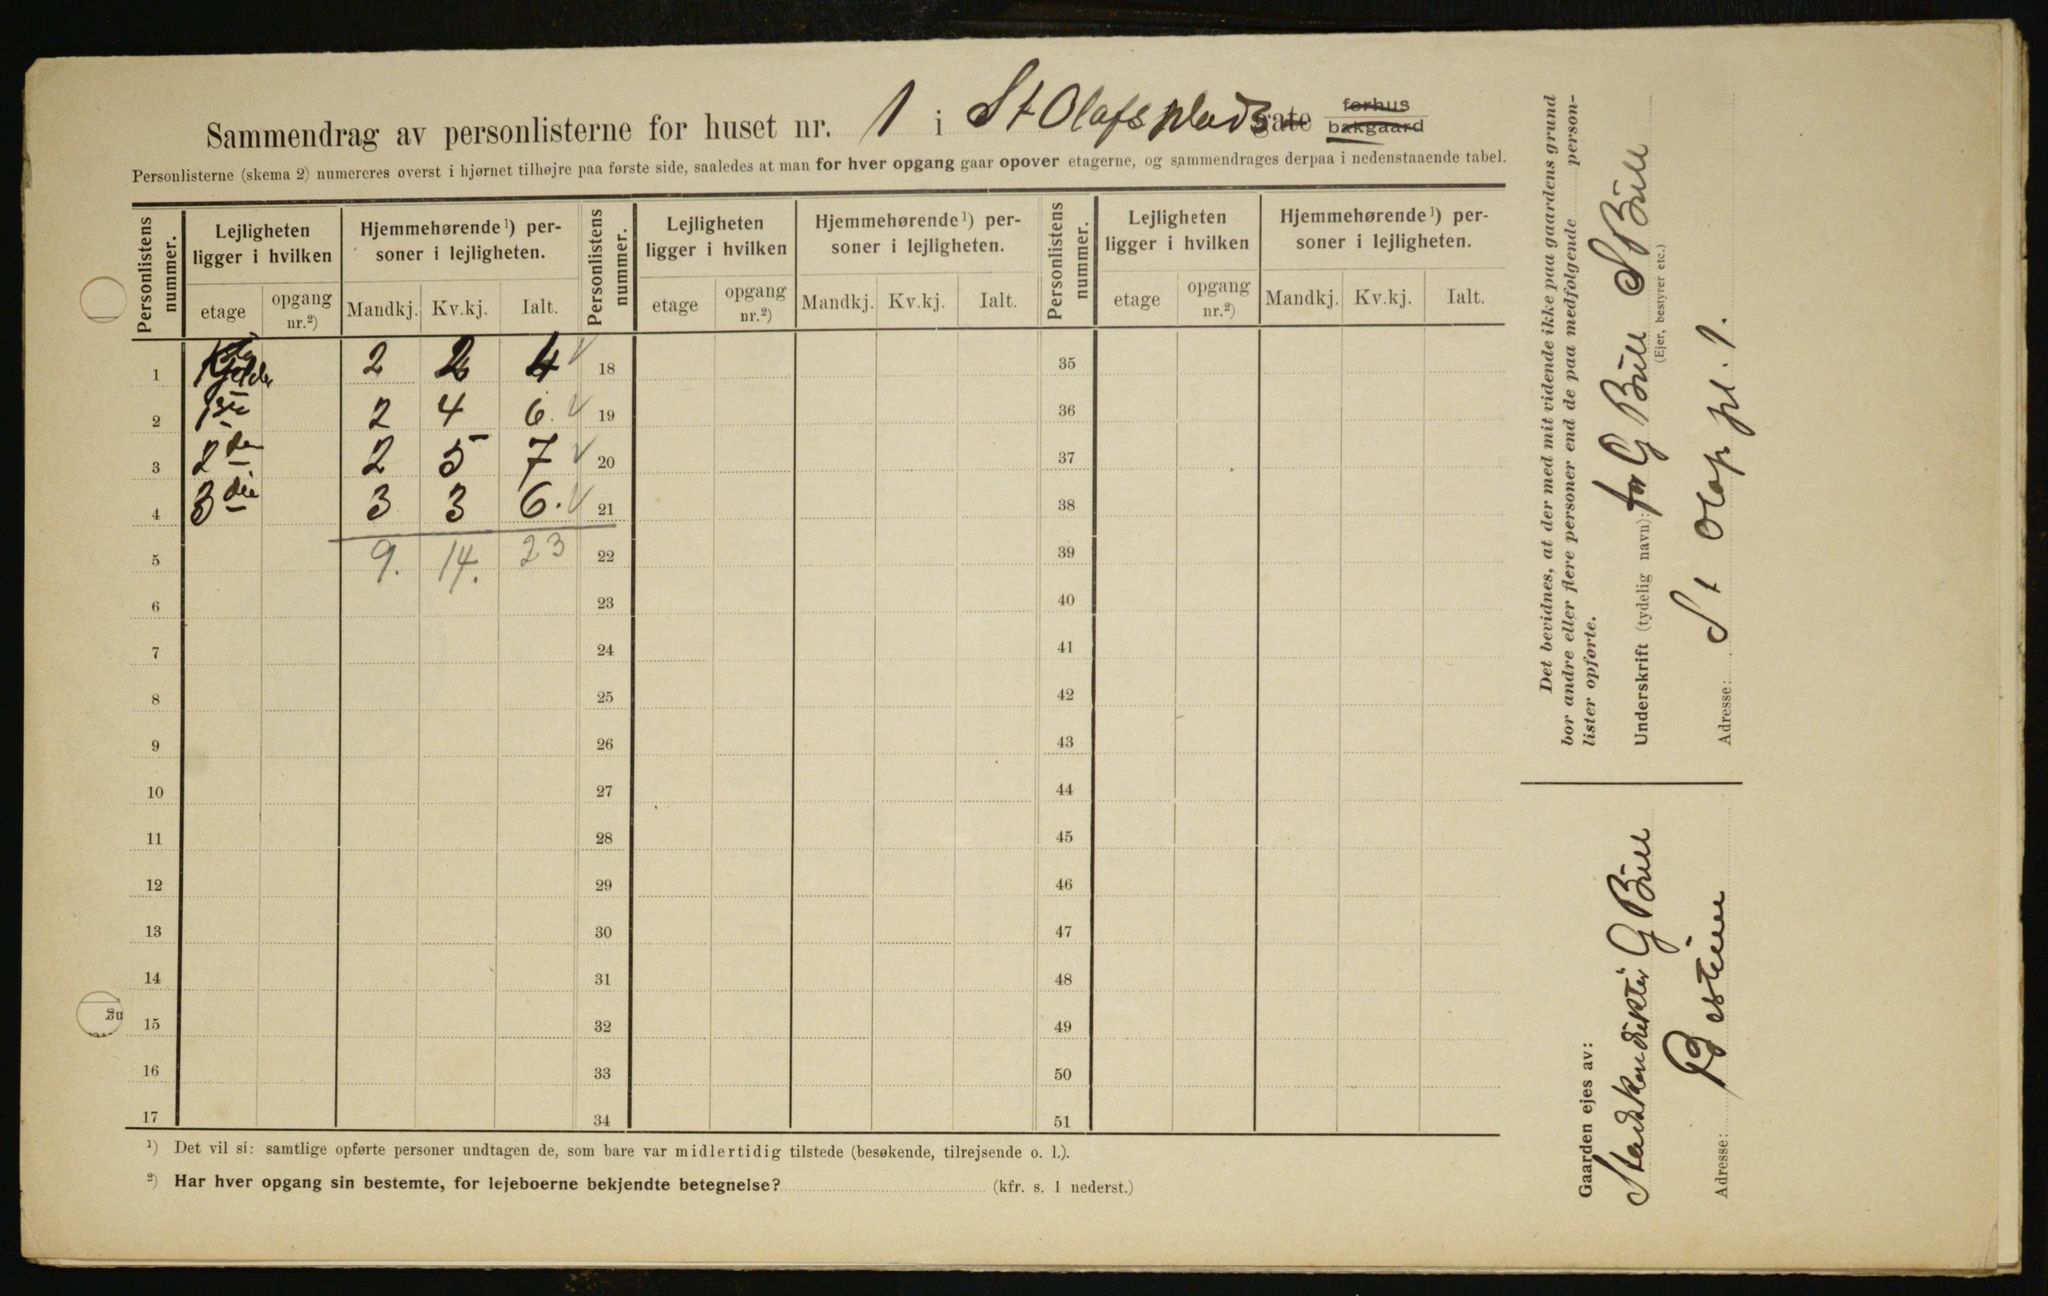 Sammendrag av personlisterne for huset nr. 1 i St Olafs plads gate forhus bakgaard
Personlisterne (skema 2) numereres øverst i hjørnet tilhøjre paa første side, saaledes at man for hver opgang gaar opover etagerne, og sammendrages derpaa i nedenstaaende tabel.
Personlistens nummer. Lejligheten ligger i hvilken Hjemmehørende ¹) personer i lejligheten. Personlistens nummer. Lejligheten ligger i hvilken Hjemmehørende ¹) personer i lejligheten. Personlistens nummer. Lejligheten ligger i hvilken Hjemmehørende ¹) personer i lejligheten.
etage opgang nr.²) Mandkj. Kv.kj. Ialt. etage opgang nr.²) Mandkj. Kv.kj. Ialt. etage opgang nr.²) Mandkj. Kv.kj. Ialt.
1 Kjelder 2 2 4 18 35
2 1ste 2 4 6 19 36
3 2den 2 5 7 20 37
4 3die 3 3 6. 21 38
5 9. 14. 23 22 39
6 23 40
7 24 41
8 25 42
9 26 43
10 27 44
11 28 45
12 29 46
13 30 47
14 31 48
15 32 49
16 33 50
17 34 51
¹) Det vil si: samtlige opførte personer undtagen de, som bare var midlertidig tilstede (besøkende, tilrejsende o. l.).
²) Har hver opgang sin bestemte, for lejeboerne bekjendte betegnelse? (kfr. s. 1 nederst.)
Det bevidnes, at der med mit vidende ikke paa gaardens grund
bor andre eller flere personer end de paa medfølgende person-
lister opførte.
Underskrift (tydelig navn): for G Bull S Bull
(Ejer, bestyrer etc.)
Adresse: St Olafs pl. 1.
Gaarden ejes av:
G Bull
Adresse: